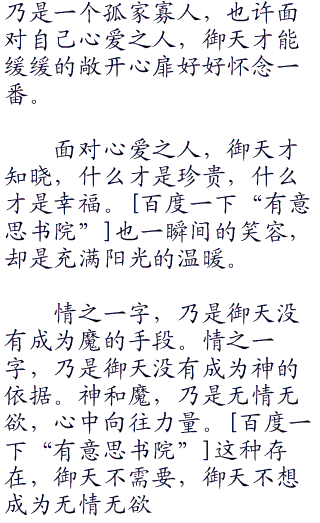 乃是一个孤家寡人，也许面
对自己心爱之人，御天才能
缓缓的敞开心扉好好怀念一
番。
面对心爱之人，御天才
知晓，什么才是珍贵，什么
才是幸福。[百度一下“有意
思书院”]也一瞬间的笑容，
却是充满阳光的温暖。
情之一字，乃是御天没
有成为魔的手段。情之一
字，乃是御天没有成为神的
依据。神和魔，乃是无情无
欲，心中向往力量。[百度一
下“有意思书院”]这种存
在，御天不需要，御天不想
成为无情无欲